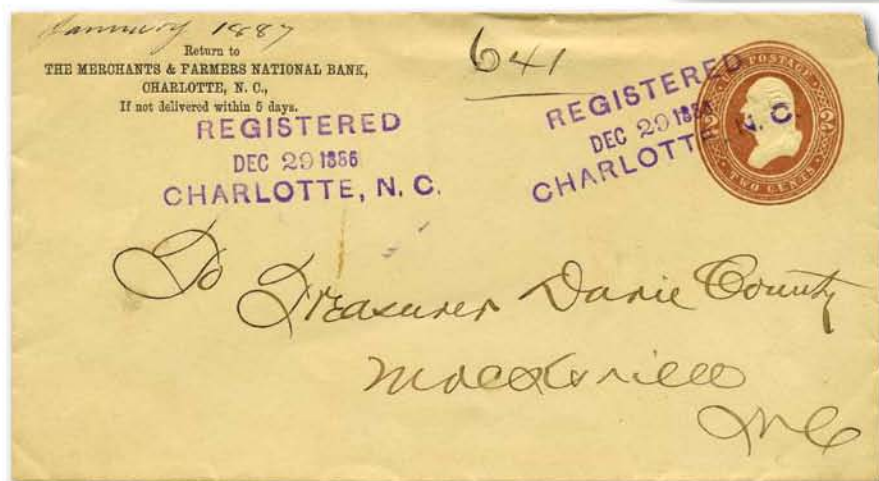 January 1887
Return to
THE MERCHANTS & FARMERS NATIONAL BANK,
CHARLOTTE, N. C.,
If not delivered within 5 days.
641
REGISTERED
DEC 29 1886
CHARLOTTE, N. C.
REGISTERED
DEC 29 188
CHARLOTTE N. C.
POSTAGE
2 2
TWO CENTS
To Treasurer Davie County
Mocksville
N C